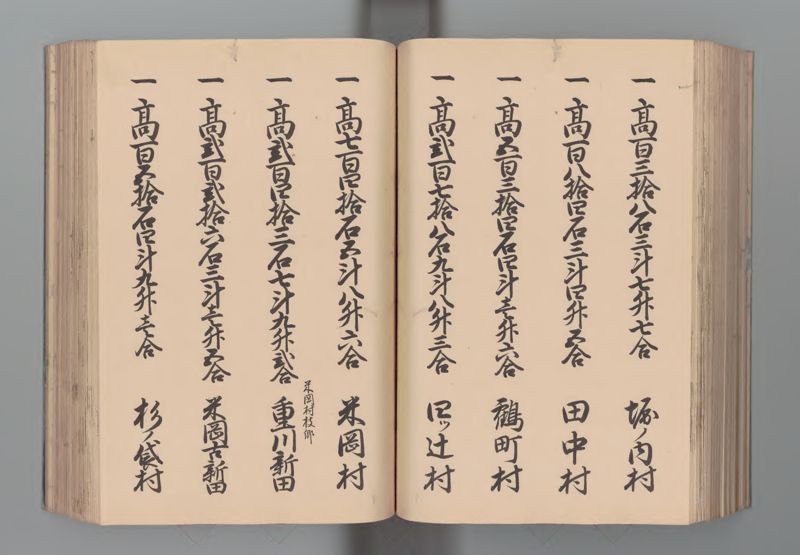 一高百三拾八石三斗七升七合 堀ノ内村
一高百八拾四石三斗四升五合 田中村
一高五百三拾四石四斗壱升六合 鶴町村
一高弐百七拾八石九斗八升三合 四ッ辻村
一高七百四拾石五斗八升六合 米岡村
米岡村枝郷
一高弐百四拾三石七斗九升弐合 重川新田
一高弐百弐拾六石三斗壱升五合 米岡古新田
一高百五拾石四斗九升壱合 杉ノ袋村